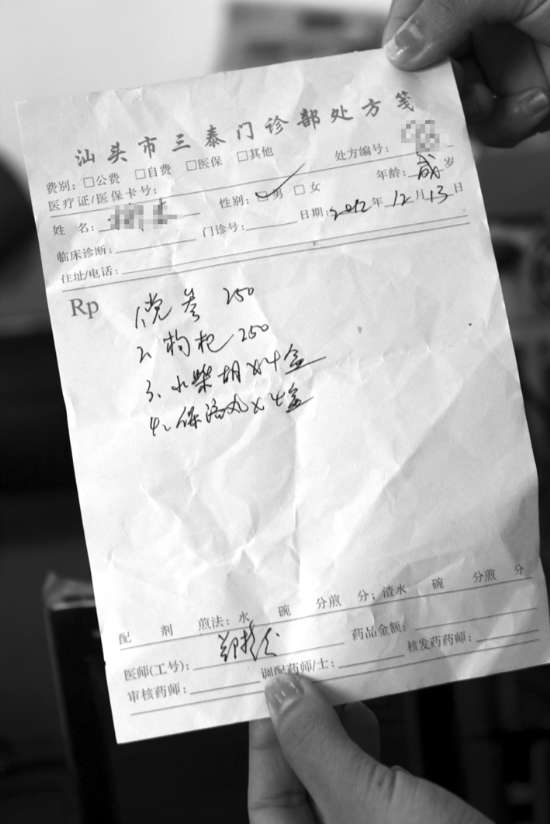 汕头市三泰门诊部处方笺
费别：□公费 □自费 □医保 □其他 处方编号：
医疗证/医保卡号：
姓名： 性别：□男 □女 年龄：成岁
门诊号： 日期：2012年12月13日
临床诊断：
住址/电话：
Rp
1、党参 250
2、枸杞 250
3、小柴胡x4盒
4、保济丸x4盒
配 剂 煎法：水 碗 分煎 分；渣水 碗 分煎 分
药品金额：
医师(工号)：
调配药师/士： 核发药药师：
审核药师：